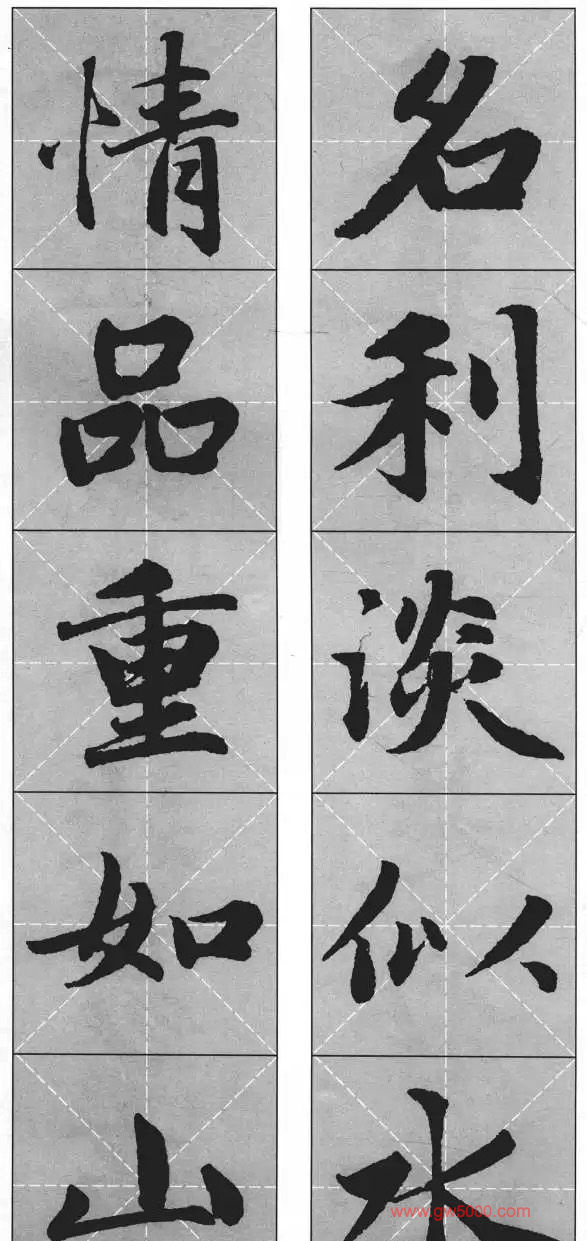 名利淡似水
情品重如山
www.gw5000.com